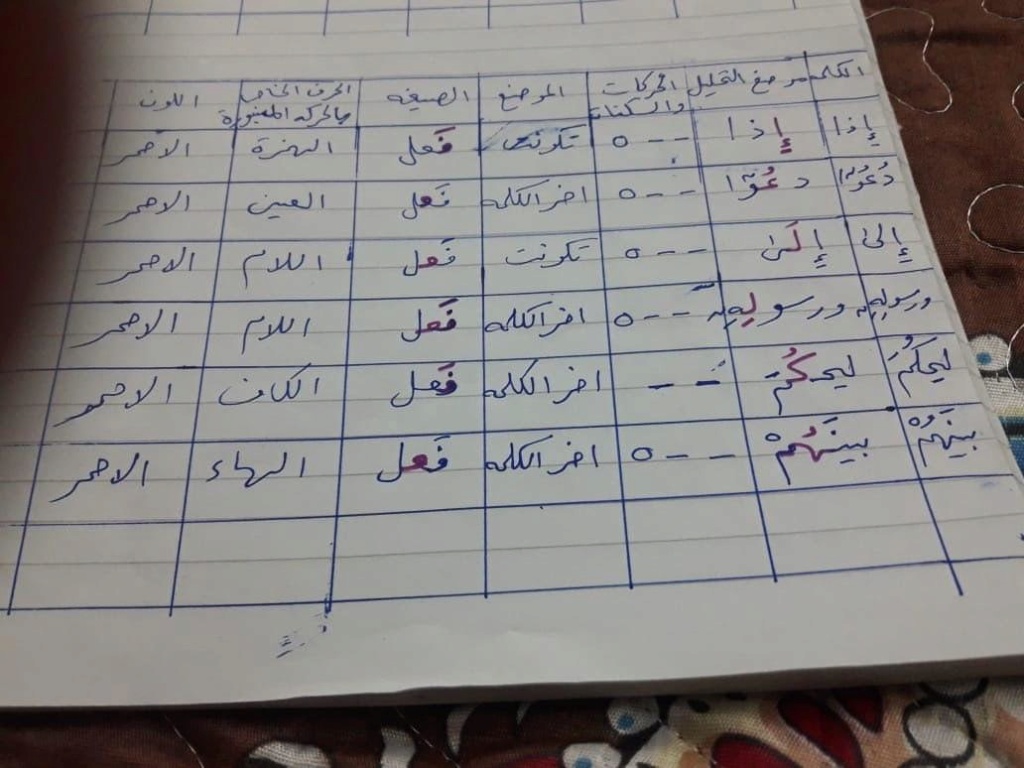 الكلمه موضع التحليل الحركات والسكنات الموضع الصيغه الحرف الخاص بالحركه المميزة اللون
إذا إِذا - - ه تكونت فَعل الهمزة الاحمر
دُعُوٓا دعُوٓا - - ه اخر الكلمه فَعل العين الاحمر
إِلى إِلَى - - ه تكونت فَعل اللام الاحمر
ورسولِهِ ورسولِهِ - - ه اخر الكلمه فَعل اللام الاحمر
ليحكُمَ ليحكُمَ - - اخر الكلمه فَعل الكاف الاحمر
بينَهُمْ بينَهُمْ - - ه اخر الكلمه فَعل الهاء الاحمر